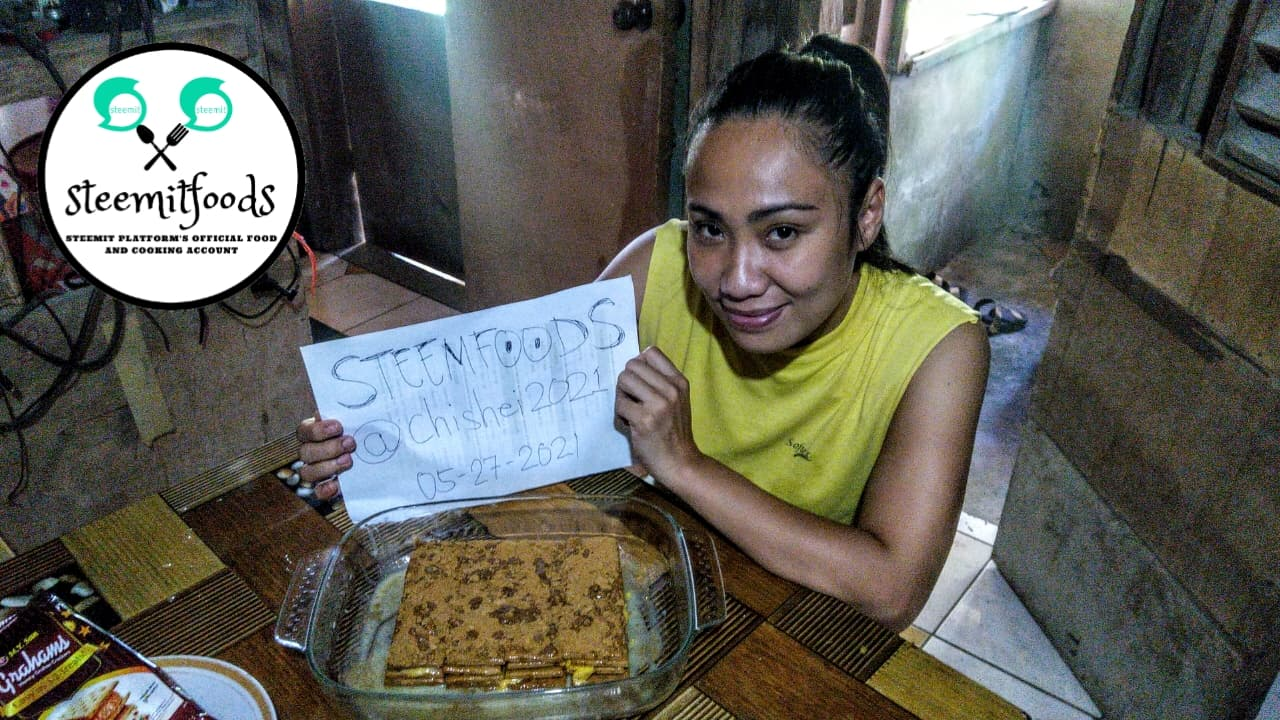 steemit
steemit
steemitfoods
STEEMIT PLATFORM'S OFFICIAL FOOD
AND COOKING ACCOUNT
STEEMFOODS
@Chishei2021
05-27-2021
M.Y. SAN
Grahams